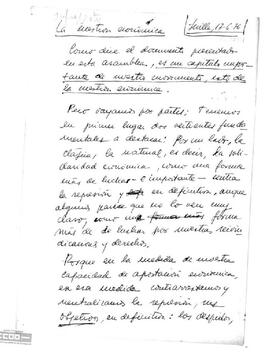 La cuestión económica
Sevilla, 17-6-76
Como dice el documento presentado
en esta asamblea, es un capítulo impor-
tante de nuestro movimiento, este de
la cuestión económica.
Pero vayamos por partes: Tenemos
en primer lugar dos vertientes funda
mentales a destacar: Por un lado, la
clásica, la natural, es decir, la soli-
daridad económica, como una forma
más de lucha - e importante - contra
la represión y en definitiva, aunque
algunos parece que no lo ven muy
claro, como una forma
más de lucha por nuestra reivin
dicaciones y derechos.
Porque en la medida de nuestra
capacidad de aportación económica
en esa medida contrarrestamos y
neutralizamos la represión, sus
objetivos, en definitiva: los despidos,